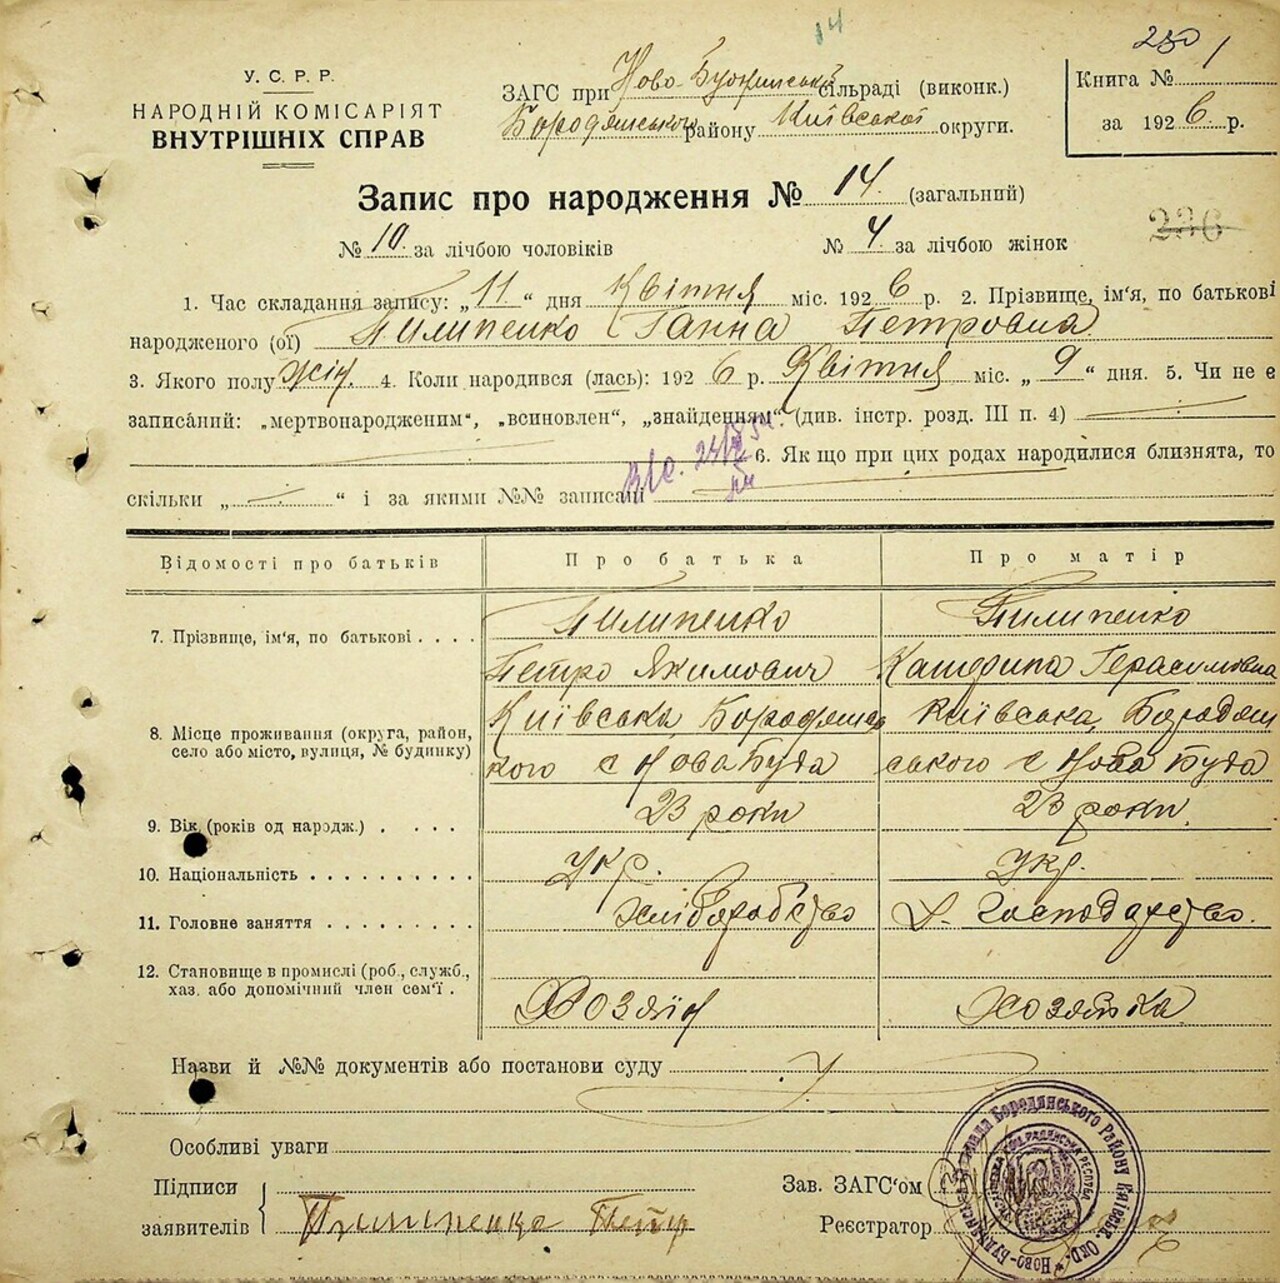 14
250
1
У. С. Р. Р.
НАРОДНІЙ КОМІСАРІЯТ
ВНУТРІШНІХ СПРАВ
ЗАГС при Ново-Будянській сільраді (виконк.)
Бородянського району Київської округи.
Книга №
за 1926 р.
Запис про народження № 14. (загальний)
236
№ 10. за лічбою чоловіків № 4 за лічбою жінок
1. Час складання запису: „11“ дня Квітня міс. 1926 р. 2. Прізвище, ім'я, по батькові
народженого (ої) Пилипенко Ганна Петровна
3. Якого полу жін. 4. Коли народився (лась): 1926 р. Квітня міс. „9“ дня. 5. Чи не є
записаний: „мертвонародженим“, „всиновлен“, „знайденням“ (див. інстр. розд. III п. 4)
6. Як що при цих родах народилися близнята, то
скільки „ “ і за якими №№ записані
Відомості про батьків Про батька Про матір
7. Прізвище, ім‘я, по батькові . . . . Пилипенко Пилипенко
Петро Якимович Катерина Герасимовна
8. Місце проживання (округа, район, село або місто, вулиця, № будинку) Київська, Бородянсь Київська, Бородян
кого с Нова Буда ського с Нова Буда
9. Вік (років од народж.) . . . . 23 роки 23 роки.
10. Національність . . . . . . . . . . Укр. Укр.
11. Головне заняття . . . . . . . . . Хліборобство Д. Господарство.
12. Становище в промислі (роб., служб.,
хаз. або допомічний член сем‘ї . Хозяїн Хозяйка
Назви й №№ документів або постанови суду
Особливі уваги
Підписи
заявителів Пилипенко Петр
Зав. ЗАГС‘ом
Реєстратор
Бородянського Району Київськ. Окр. * Ново-Будянська